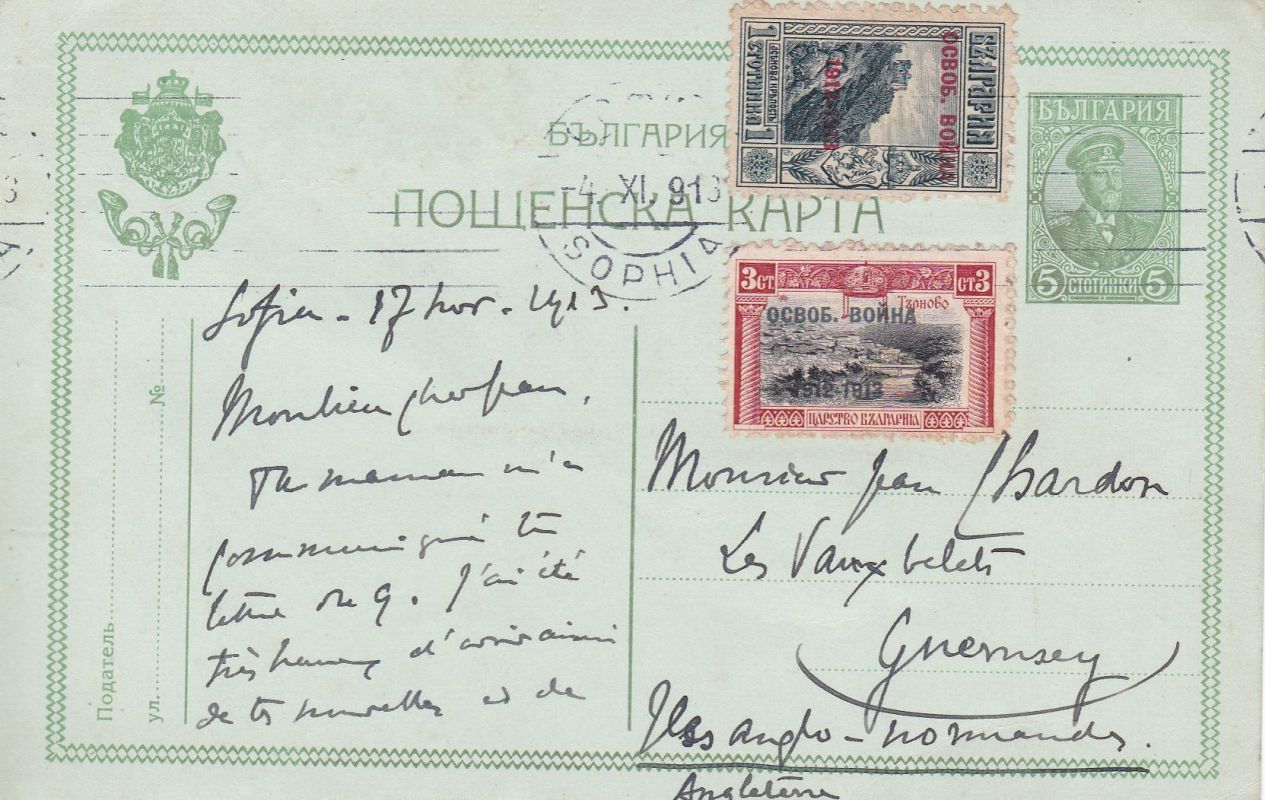 БЪЛГАРИЯ
ПОЩЕНСКА КАРТА
БЪЛГАРИЯ
5 СТОТИНКИ 5
БЪЛГАРИЯ
1 СТОТИНКА 1
ОСВОБ. ВОЙНА
1912-1913
3 СТ. СТ 3
Търново
ОСВОБ. ВОЙНА
1912-1913
ЦАРСТВО БЪЛГАРИЯ
-4. XI. 913
SOPHIA
Податель
ул. №
Sofia - 17 nov. 1913.
Mon bien cher Jean,
Ta maman m'a
communiqué ta
lettre du 9. J'ai été
très heureux d'avoir ainsi
de tes nouvelles et de
Monsieur Jean Chardon
Les Vauxbelets
Guernsey
Iles anglo-normandes.
Angleterre